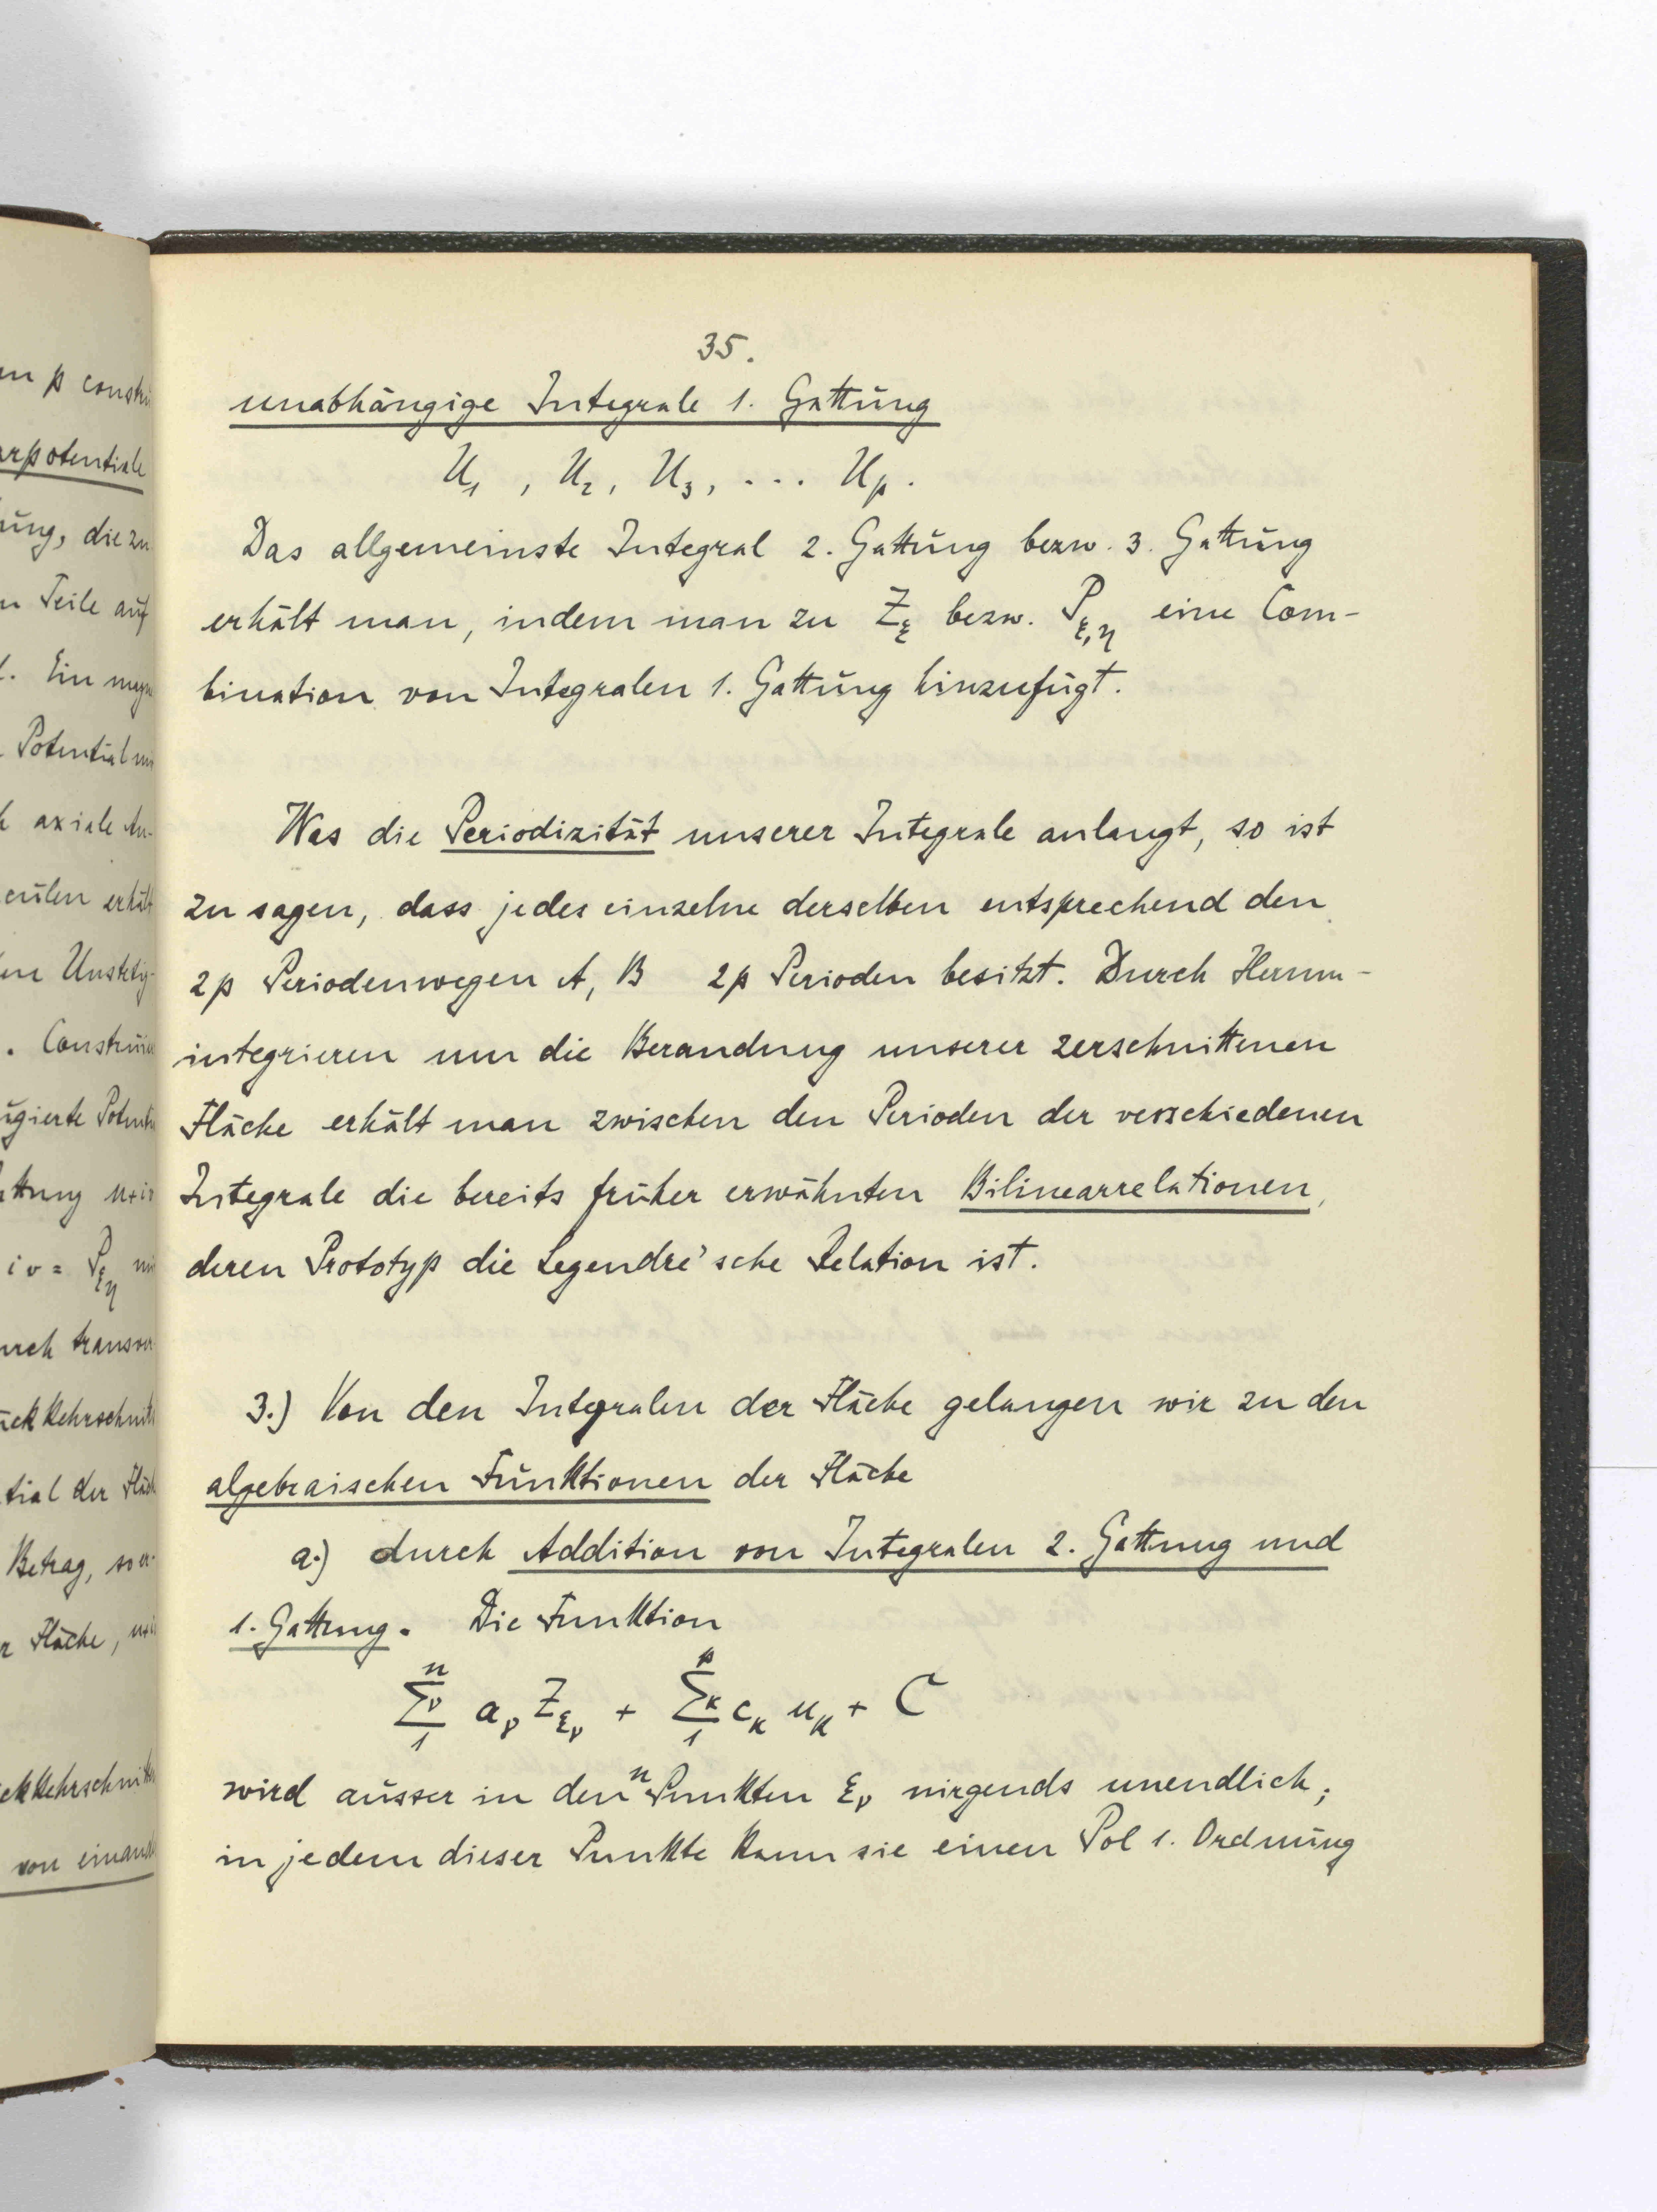 in p constr
arpotentiale
ung, die zu
n Teile auf
Ein magn
Potential un
axiale An-
culen erhält
Unstetig-
. Construie
ugierte Potenti
attung u+iv
iv = P ξη
urch transver
ückkehrschnitt
tial der Fläch
Betrag, so er-
r Fläche, u+i
ckkehrschnitt
von einand
35.
unabhängige Integrale 1. Gattung
U₁, U₂, U₃, ... Uₚ.
Das allgemeinste Integral 2. Gattung bezw. 3. Gattung
erhält man, indem man zu Z_ξ bezw. P_ξ,η eine Com-
bination von Integralen 1. Gattung hinzufügt.
Was die Periodizität unserer Integrale anlangt, so ist
zu sagen, dass jedes einzelne derselben entsprechend den
2p Periodenwegen A, B 2p Perioden besitzt. Durch Herum-
integrieren um die Berandung unserer zerschnittenen
Fläche erhält man zwischen den Perioden der verschiedenen
Integrale die bereits früher erwähnten Bilinearrelationen,
deren Prototyp die Legendre'sche Relation ist.
3.) Von den Integralen der Fläche gelangen wir zu den
algebraischen Funktionen der Fläche
a.) durch Addition von Integralen 2. Gattung und
1. Gattung. Die Funktion
n∑ν1 a_ν Z_ξν + p∑κ1 c_κ u_κ + C
wird ausser in den n Punkten ξ_ν nirgends unendlich;
in jedem dieser Punkte kann sie einen Pol 1. Ordnung